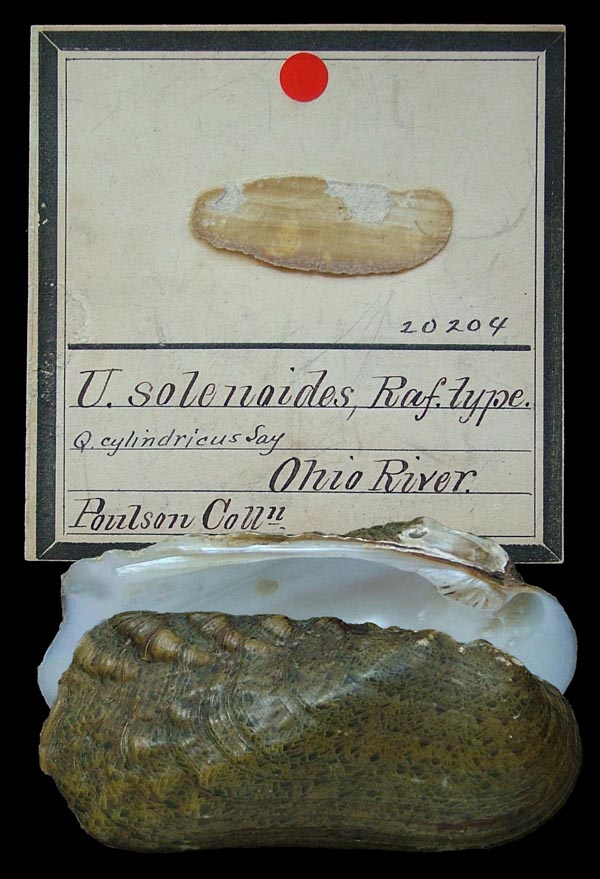 20204
U. solenoides, Raf. type.
Q. cylindricus Say
Ohio River.
Poulson Colln.